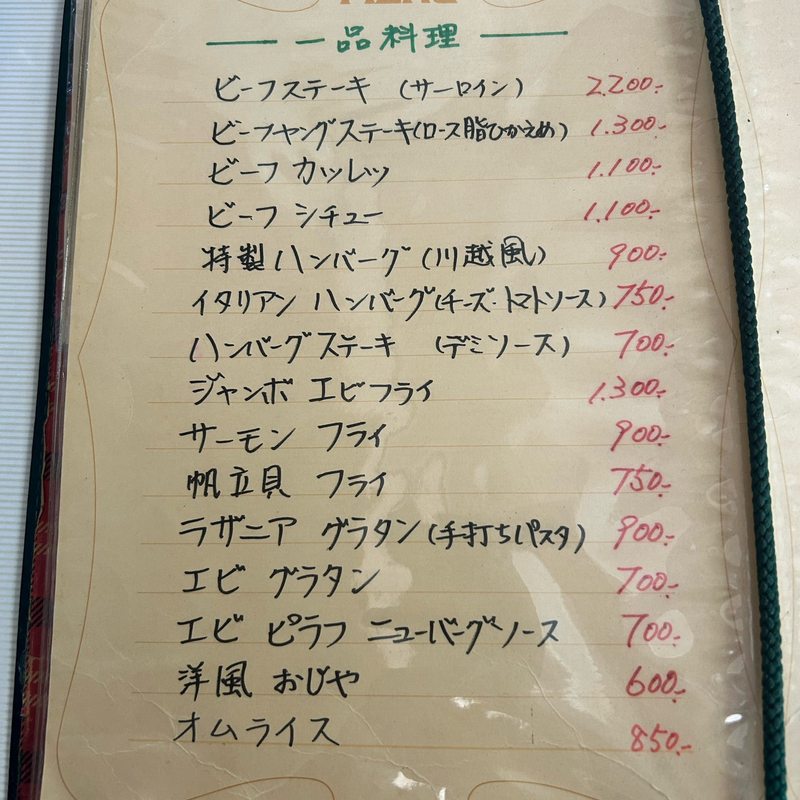 一品料理
ビーフステーキ (サーロイン) 2.200.-
ビーフヤングステーキ(ロース脂ひかえめ) 1.300.-
ビーフ カツレツ 1.100.-
ビーフ シチュー 1.100.-
特製ハンバーグ (川越風) 900.-
イタリアン ハンバーグ(チーズ・トマトソース) 750.-
ハンバーグステーキ (デミソース) 700.-
ジャンボ エビフライ 1.300.-
サーモン フライ 900.-
帆立貝 フライ 750.-
ラザニア グラタン(手打ちパスタ) 900.-
エビ グラタン 700.-
エビ ピラフ ニューバーグソース 700.-
洋風 おじや 600.-
オムライス 850.-